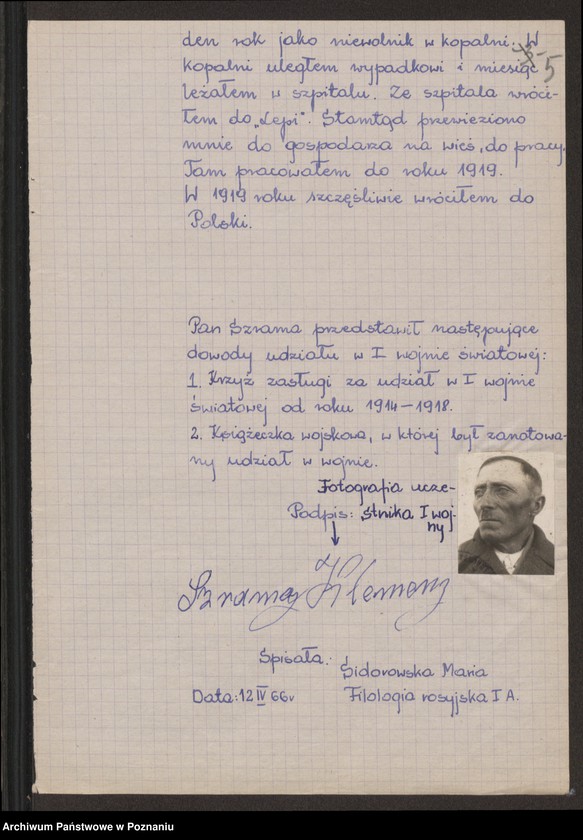 den rok jako niewolnik w kopalni. W
5
kopalni uległem wypadkowi i miesiąc
leżałem w szpitalu. Ze szpitala wróci-
łem do „Lepi". Stamtąd przewieziono
mnie do gospodarza na wieś, do pracy.
Tam pracowałem do roku 1919.
W 1919 roku szczęśliwie wróciłem do
Polski.
Pan Szrama przedstawił następujące
dowody udziału w I wojnie światowej:
1. Krzyż zasługi za udział w I wojnie
światowej od roku 1914-1918.
2. Książeczka wojskowa, w której był zanotowa-
ny udział w wojnie.
Fotografia ucze-
Podpis: stnika I woj-
ny
Szrama Klemens
Spisała:
Sidorowska Maria
Data: 12 IV 66r Filologia rosyjska I A.
Archiwum Państwowe w Poznaniu